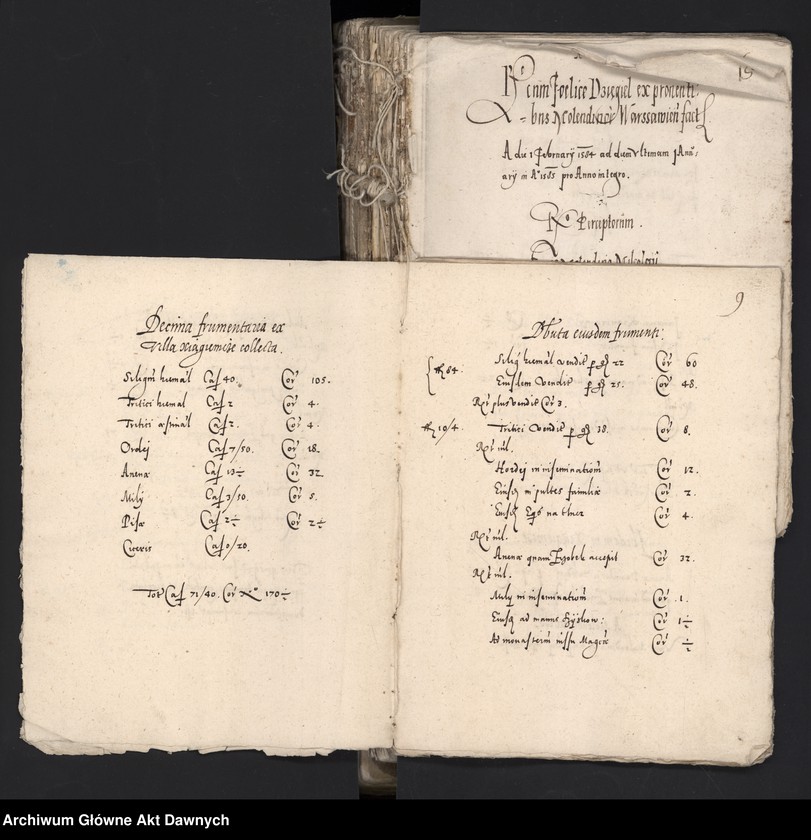 19
cum Foelice Dzięgiel ex proventi
bus Warssawien fact
A die 1 February 1584 ad diem Vltimam Janu
ary in A 1585 pro Anno integro.
Perceptorum.
Decima frumentaria ex
villa collecta.
Siliginis hiemal Cas 40. Cor 105.
Tritici hiemal Cas 2 Cor 4.
Tritici Cas 2. Cor 4.
Ordei Cas 7/50. Cor 18.
Avenæ Cas 13 ÷ Cor 32
Milij Cas 3/10. Cor 5.
Pisæ Cas 2 ÷ Cor 2 ÷
Ciceris Cas 0/20.
Tot Cas 71/40. Cor 170 ÷
9
Dbuta eiusdem frumenti:
84: Silig hiemal vendit p gr 22 Cor 60
Eiusdem vendit p gr 25. Cor 48.
Rt plus vendit Cor 3.
10/4. Tritici vendit p gr 38. Cor 8.
Rt nil.
Hordei in inseminationem Cor 12.
Eiusd in pultes familiæ Cor 2.
Eiusd Cor 4.
Rt nil.
Avenæ quam accepit Cor 32.
Rt nil.
Milij in inseminationem Cor 1.
Eiusd ad manus Cor 1 ÷
Ad monasterium iussu Cor ÷
Archiwum Główne Akt Dawnych